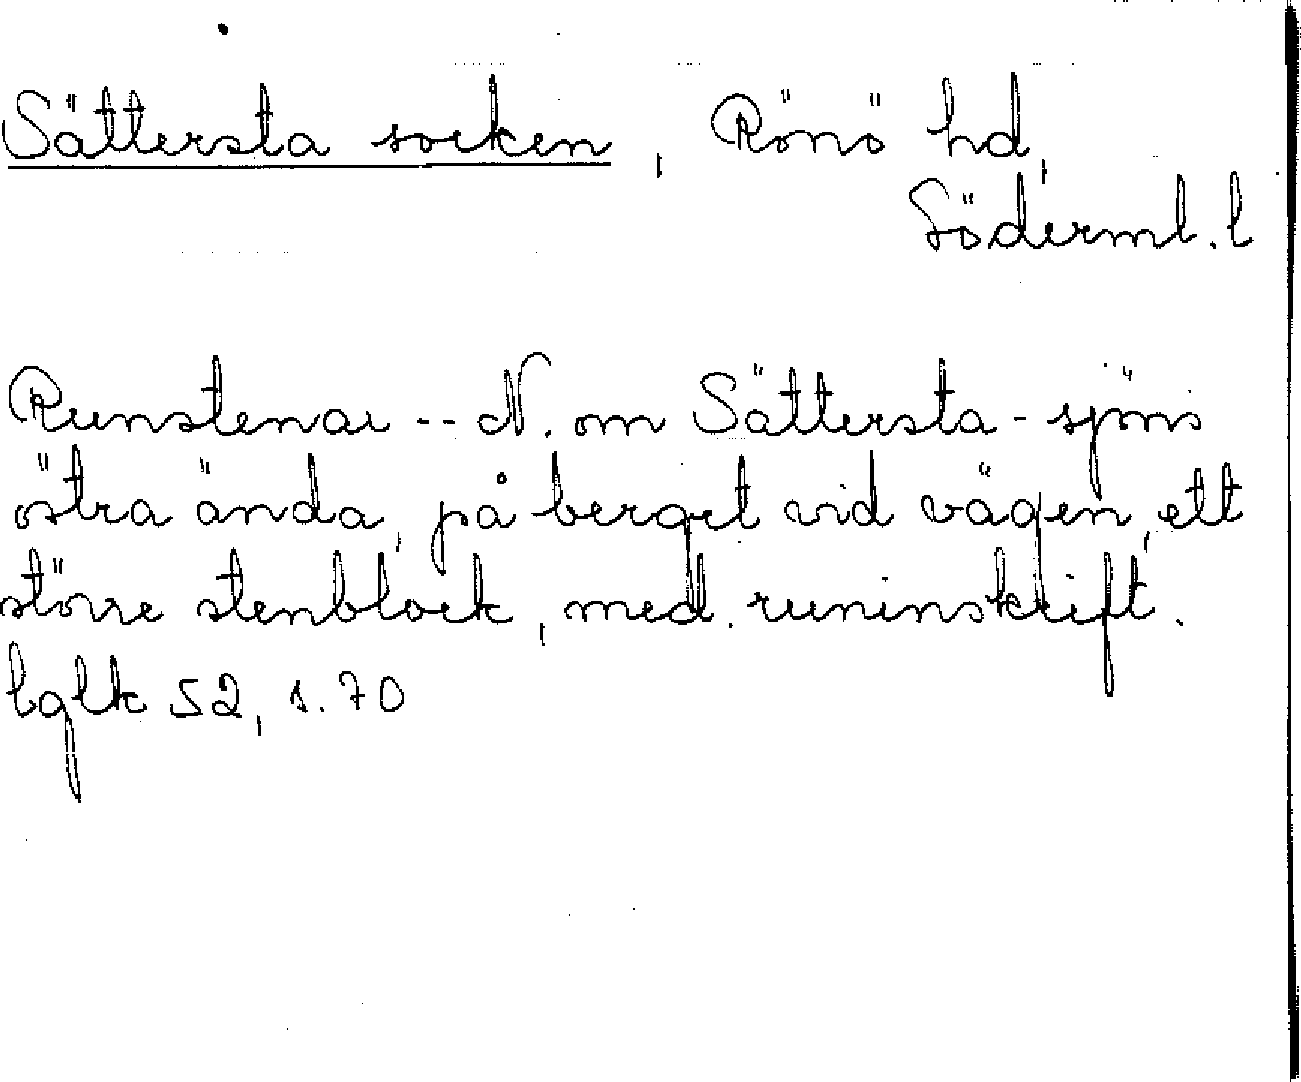 Sättersta socken, Rönö hd,
Söderml. l
Runstenar -- N. om Sättersta-sjöns
östra ända, på berget vid vägen, ett
större stenblock, med runinskrift.
bglk 52, s. 70